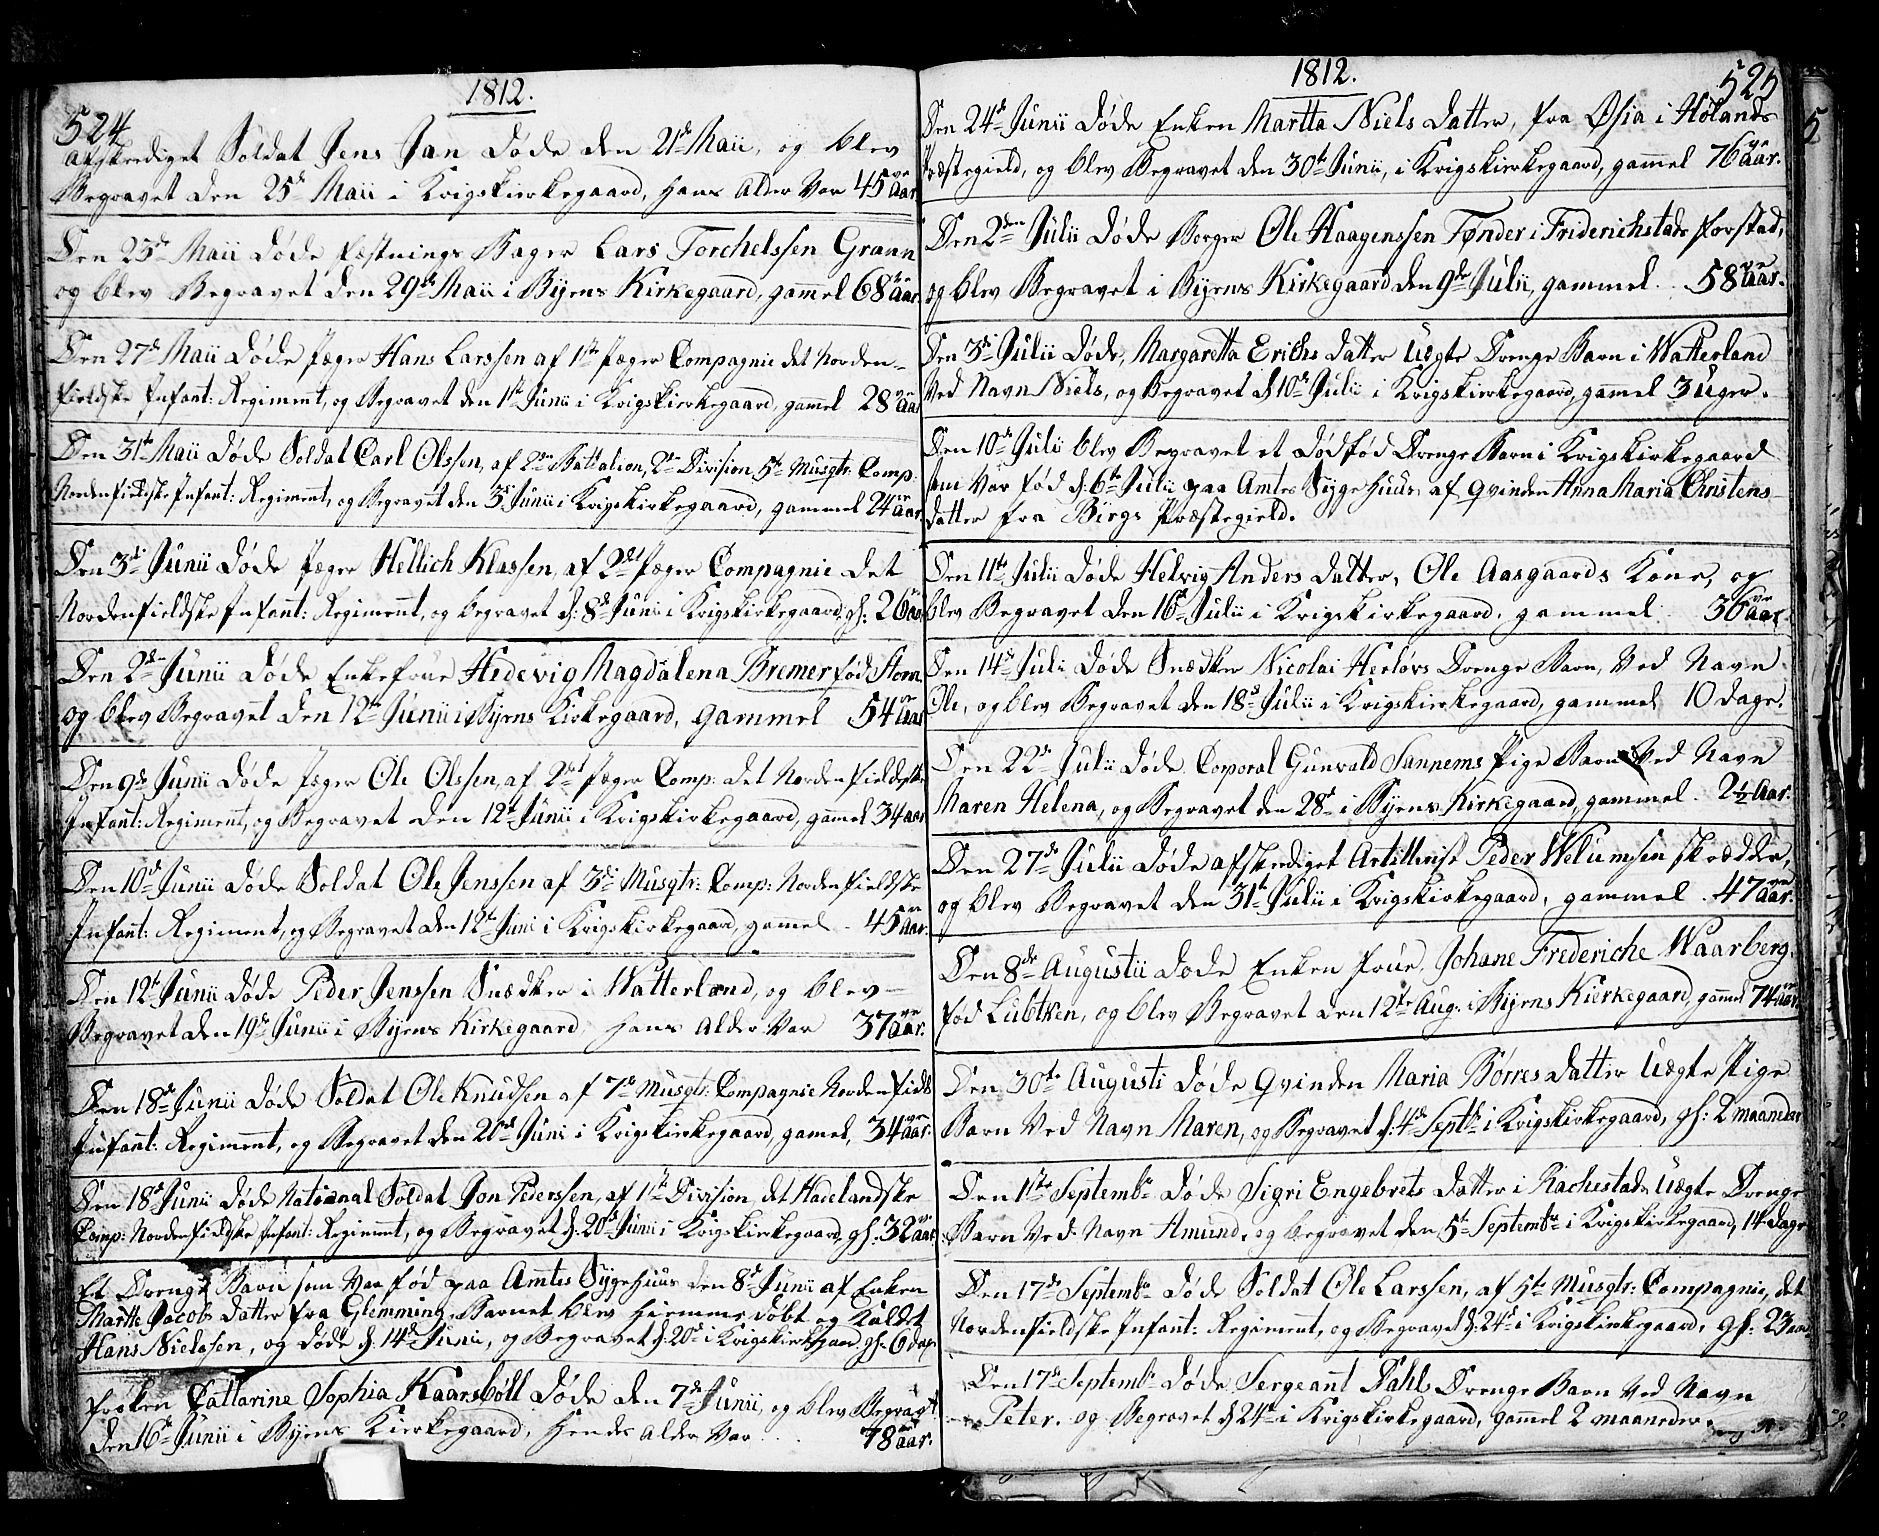 524
1812.
Afskediget Soldat Jens Jan Døde den 21de Maii, og blev
Begravet den 25de Maii i Krigskirkegaard, hans Alder Var 45ve Aar
Den 23de Maii Døde Fæstnings Bager Lars Torchelssen Grann
og blev Begravet den 29de Maii i Byens Kirkegaard, gammel 68ve Aar
Den 27de Maii Døde Jæger Hans Larssen af 1ste Jæger Compagnie det Norden-
fieldske Infant: Regiment, og Begravet den 1ste Junii i Krigskirkegaard, gammel 28ve Aar
Den 31te Maii Døde Soldat Carl Olssen, af 2den Battalion, 2den Division, 5te Musqtr: Comp:
Nordenfieldske Infant: Regiment, og Begravet den 3die Junii i Krigskirkegaard, gammel 24ve Aar
Den 3die Junii Døde Jæger Hellich Klassen, af 2det Jæger Compagnie det
Nordenfieldske Infant: Regiment, og begravet d: 8de Junii i Krigskirkegaard, gl: 26 Aar
Den 2de Junii Døde Enkefrue Hedevig Magdalena Bremer fød Storm
og blev Begravet den 12te Junii i Byens Kirkegaard, gammel 54ve Aar
Den 9de Junii Døde Jæger Ole Olssen, af 2det Jæger Comp: det Nordenfieldske
Infant: Regiment, og Begravet den 12te Junii i Krigskirkegaard, gammel 34 aar
Den 10de Junii Døde Soldat Ole Jenssen af 3die Musqtr: Comp: Nordenfieldske
Infant: Regiment, og Begravet den 12te Juni i Krigskirkegaard, gammel . 45ve Aar.
Den 12te Junii Døde Peder Jenssen Snædker i Watterland, og blev
Begravet den 19de Junii i Byens Kirkegaard, hans Alder Var 37ve Aar.
Den 18de Junii Døde Soldat Ole Knudsen af 7de Musqtr: Compagnie Nordenfields
Infant: Regiment, og Begravet den 20de Juni i Krigskirkegaard, gamel, 34ve Aar.
Den 18de Junii Døde National Soldat Jon Pederssen, af 1ste Division, det Hadelandske
Comp: Nordenfieldske Infant: Regiment, og Begravet d: 20de Juni i Krigskirkegaard, gl: 32ve aar
Et Drenge Barn som Var fød paa Amtes Sygehuus den 8de Junii af Enken
Marthe Jacobs datter fra Glemming, Barnet blev hiemme døbt og Kaldet
Hans Nielssen, og døde d: 14de Junii, og Begravet d: 20de i Krigskirkegaard. gl: 6 dage
Frøken Cattarine Sophia Kaarsbøll Døde den 7de Junii, og blev Begravet
den 16de Junii i Byens Kierkegaard, hendes Alder Var . . . 78ve Aar.
1812.
525
Den 24de Junii Døde Enken Martta Niels datter, fra Øsia i Hølands
Præstegield, og blev Begravet den 30te Junii, i Krigskirkegaard, gammel 76ve Aar.
Den 2den Julii Døde Borger Ole Haagenssen Tønder i Friderichstads Forstad,
og blev Begravet i Byens Kirkegaard den 9de Julii, gammel . . 58ve Aar.
Den 3die Julii Døde, Margaretta Erichs datter Uægte Drenge Barn i Watterland
Ved Navn Niels, og Begravet d: 10de Julii i Krigskirkegaard, gammel 3 Uger.
Den 10de Julii blev Begravet et Dødfød Drenge Barn i Krigskirkegaard
som Var fød d: 6te Julii paa Amtes Sygehuus, af Qvinden Anna Maria Christens
datter fra Bergs Præstegield.
Den 11te Julii Døde Helvig Anders datter, Ole Aasgaards Kone, og
blev Begravet den 16de Julii i Krigskirkegaard, gammel . 36ve Aar
Den 14de Juli Døde Snædker Nicolai Herløvs Drenge Barn, Ved Navn
Ole, og blev Begravet den 18de Julii i Krigskirkegaard, gammel 10 Dage.
Den 22de Julii Døde Corporal Gunvald Sannems Pige Barn Ved Navn
Maren Helena, og Begravet den 28de i Byens Kirkegaard, gammel . 2½ Aar.
Den 27de Julii Døde afskediget Artillerist Peder Welumsen skrædder,
og blev Begravet den 31te Julii i Krigskirkegaard, gammel . 47ve Aar.
Den 8de Augustii Døde Enken Frue, Johane Frederiche Waarberg,
fød Lübtken, og blev Begravet den 12te Aug: i Byens Kierkegaard, gammel 74ve Aar
Den 30te Augusti Døde Qvinden Maria Børres datter Uægte Pige
Barn Ved Navn Maren, og Begravet d: 4de Septbr i Krigskirkegaard, gl: 2 maaneder
Den 1ste Septembr Døde Sigri Engebrets datter i Rachestads Uægte Drenge
Barn Ved Navn Amund, og begravet den 5te Septembr i Krigskirkegaard, 14 dage
Den 17de Septembr Døde Soldat Ole Larssen, af 5te Musqtr: Compagnie, det
Nordenfieldske Infant: Regiment, og Begravet d: 24de i Krigskirkegaard, gl: 23 aar
Den 17de Septembr Døde Sergeant Dahls Drenge Barn Ved Navn
Peter. og Begravet d: 24de i Krigskirkegaard, gammel 2 maaneder.